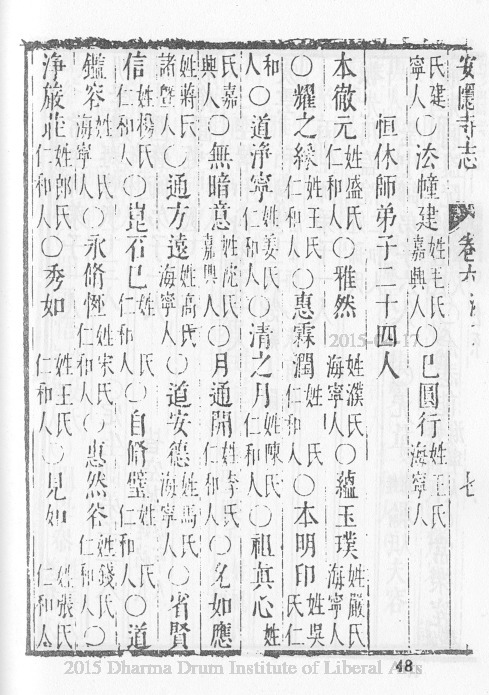 安隱寺志 卷六 七
氏建寧人〇法幢建姓毛氏嘉興人〇巳圓行姓王氏海寧人
恒休師弟子二十四人
本徹元姓盛氏仁和人〇雅然姓濮氏海寧人〇蘊玉璞姓嚴氏海寧人
〇耀之緣姓王氏仁和人〇惠霖潤姓 氏仁和人〇本明印姓吳氏仁
和人〇道淨寧姓姜氏仁和人〇清之月姓陳氏仁和人〇祖真心姓
氏嘉興人〇無暗意姓沈氏嘉興人〇月通開姓李氏仁和人〇名如應
姓蔣氏諸暨人〇通方遠姓高氏海寧人〇道安德姓馬氏海寧人〇省賢
信姓楊氏仁和人〇崑石巳姓 氏仁和人〇自脩璧姓 氏仁和人〇道
鑑容姓 氏海寧人〇永脩恆姓宋氏仁和人〇惠然容姓錢氏仁和人〇
淨嚴莊姓郎氏仁和人〇秀如 姓王氏仁和人〇見如 姓張氏仁和人
2015-04-17
48
2015 Dharma Drum Institute of Liberal Arts